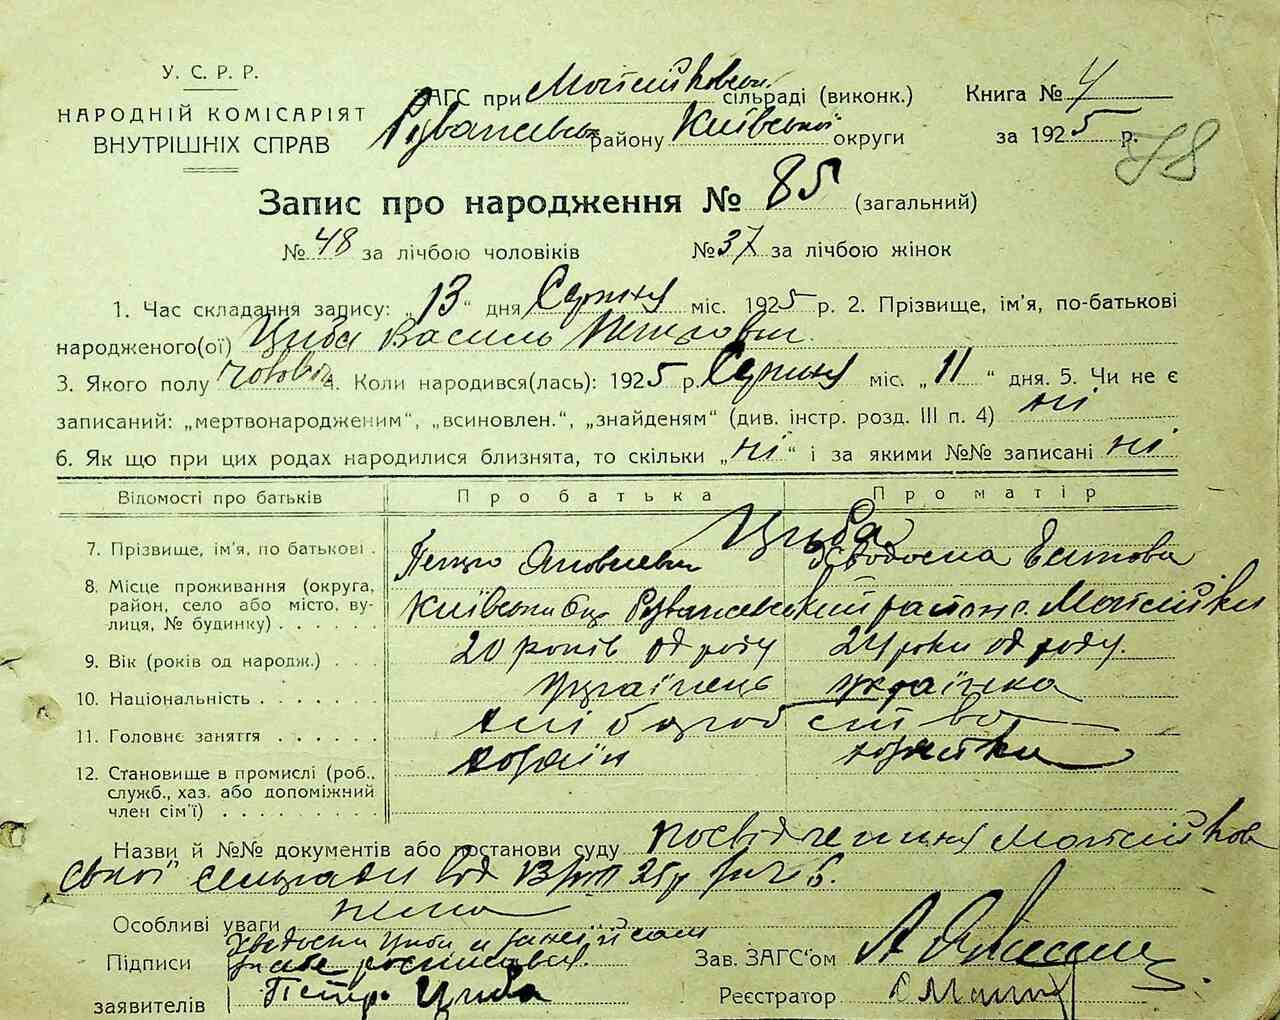 У. С. Р. Р.
НАРОДНІЙ КОМІСАРІЯТ
ВНУТРІШНІХ СПРАВ
ЗАГС при сільраді (виконк.)
району Київської округи
Книга № 4
за 1925 р.
78
Запис про народження № 85 (загальний)
№ 48 за лічбою чоловіків № 37 за лічбою жінок
1. Час складання запису: „13“ дня Серпня міс. 1925 р. 2. Прізвище, ім'я, по-батькові
народженого(ої) Циба Василь Петрович.
3. Якого полу чоловіч 4. Коли народився(лась): 1925 р. Серпня міс. „11“ дня. 5. Чи не є
записаний: „мертвонародженим“, „всиновлен.“, „знайденям“ (див. інстр. розд. III п. 4) ні
6. Як що при цих родах народилися близнята, то скільки „ні“ і за якими №№ записані ні
Відомості про батьків Про батька Про матір
Циба
7. Прізвище, ім'я, по батькові . Петро Яковлевич
8. Місце проживання (округа,
район, село або місто, ву-
лиця, № будинку) . . . . .
9. Вік (років од народж.) . . . 20 років од роду 24 роки од роду.
10. Національність . . . . . . . українець українка
11. Головне заняття . . . . . . хліборобство
12. Становище в промислі (роб.,
служб., хаз. або допоміжний
член сім'ї) . . . . . . . . .
хозяїн хозяйка
Назви й №№ документів або постанови суду посвідчення
сільради від
Особливі уваги нема
Підписи
заявителів Петро Циба
Зав. ЗАГС'ом
Реєстратор